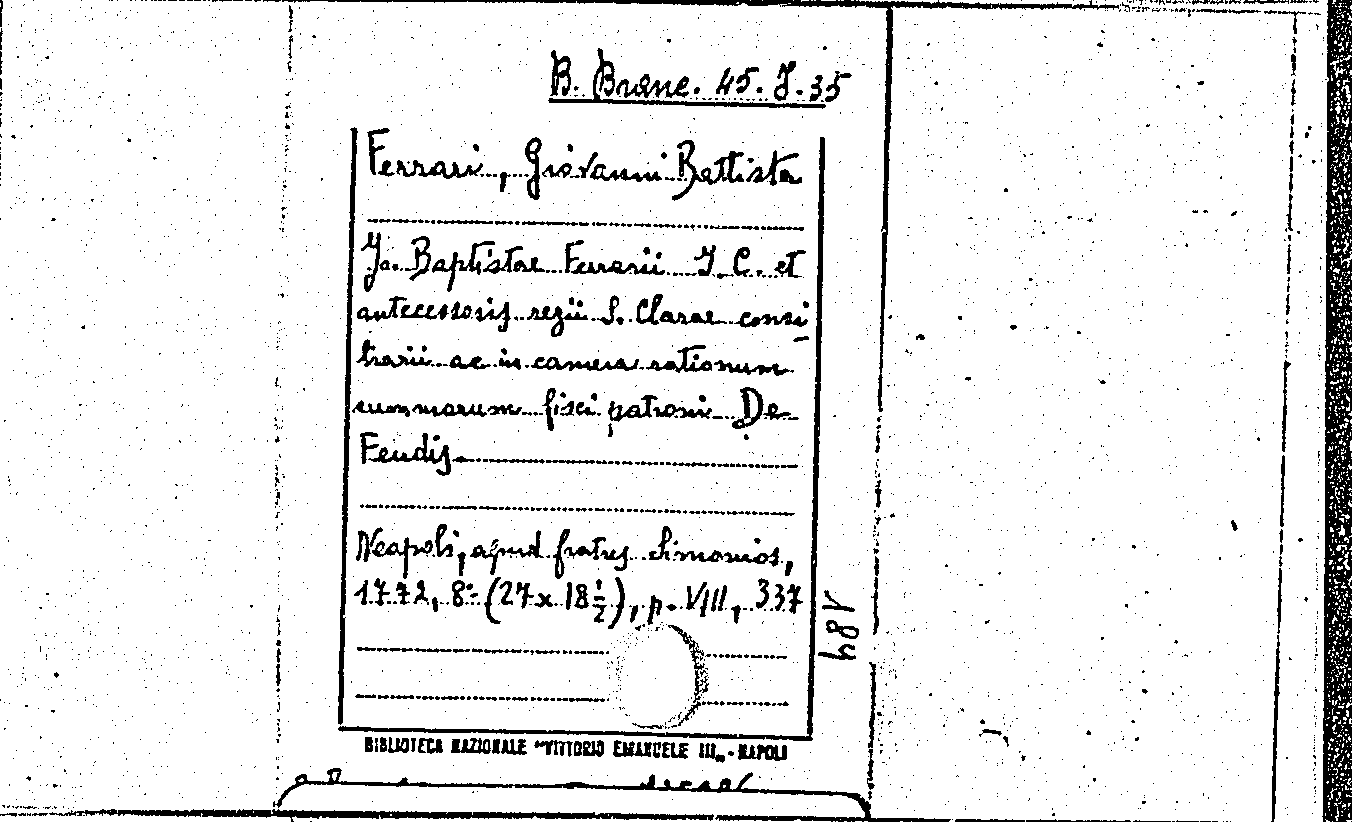 B. Branc. 45. J. 35
Ferrari, Giovanni Battista
Jo. Baptistae Ferrarii J. C. et
antecessoris regii S. Clarae consi
liarii ac in camera rationum
summarum fisci patroni De
Feudis
Neapoli, apud fratres Simonios,
1772, 8º (27 x 18 1/2), p. VIII, 337
184
BIBLIOTECA NAZIONALE "VITTORIO EMANUELE III„ - NAPOLI